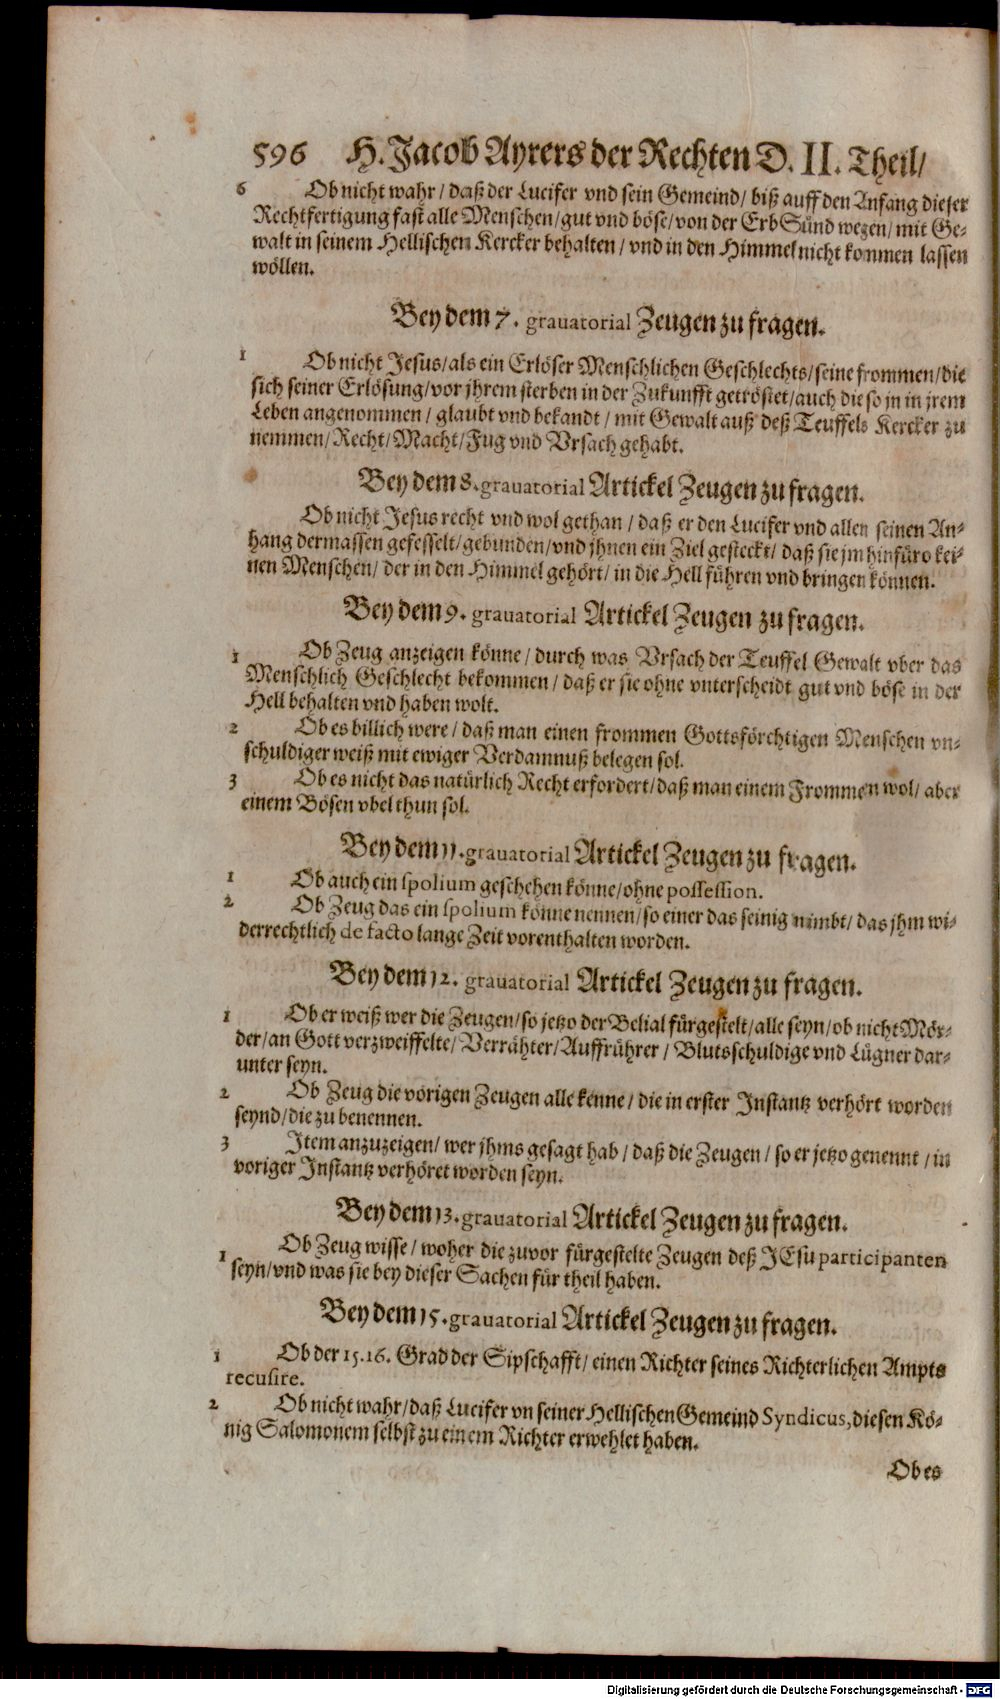 596 H. Jacob Ayrers der Rechten D. II. Theil/
6 Ob nicht wahr / daß der Lucifer vnd sein Gemeind / biß auff den Anfang dieser
Rechtfertigung fast alle Menschen / gut vnd böse / von der ErbSünd wegen / mit Ge-
walt in seinem Hellischen Kercker behalten / vnd in den Himmel nicht kommen lassen
wöllen.
Bey dem 7. grauatorial Zeugen zu fragen.
1 Ob nicht Jesus / als ein Erlöser Menschlichen Geschlechts / seine frommen / die
sich seiner Erlösung / vor jhrem sterben in der Zukunfft getröstet / auch die so jn in jrem
Leben angenommen / glaubt vnd bekandt / mit Gewalt auß deß Teuffels Kercker zu
nemmen / Recht / Macht / Fug vnd Vrsach gehabt.
Bey dem 8. grauatorial Artickel Zeugen zu fragen.
Ob nicht Jesus recht vnd wol gethan / daß er den Lucifer vnd allen seinen An-
hang dermassen gefesselt / gebunden / vnd jhnen ein Ziel gesteckt / daß sie jm hinfüro kei-
nen Menschen / der in den Himmel gehört / in die Hell führen vnd bringen können.
Bey dem 9. grauatorial Artickel Zeugen zu fragen.
1 Ob Zeug anzeigen könne / durch was Vrsach der Teuffel Gewalt vber das
Menschlich Geschlecht bekommen / daß er sie ohne vnterscheidt gut vnd böse in der
Hell behalten vnd haben wolt.
2 Ob es billich were / daß man einen frommen Gottsförchtigen Menschen vn-
schuldiger weiß mit ewiger Verdamnuß belegen sol.
3 Ob es nicht das natürlich Recht erfordert / daß man einem Frommen wol / aber
einem Bösen vbel thun sol.
Bey dem 11. grauatorial Artickel Zeugen zu fragen.
1 Ob auch ein spolium geschehen könne / ohne possession.
2 Ob Zeug das ein spolium könne nennen / so einer das seinig nimbt / das jhm wi-
derrechtlich de facto lange Zeit vorenthalten worden.
Bey dem 12. grauatorial Artickel Zeugen zu fragen.
1 Ob er weiß wer die Zeugen / so jetzo der Belial fürgestelt / alle seyn / ob nicht Mör-
der / an Gott verzweiffelte / Verrähter / Auffrührer / Blutsschuldige vnd Lügner dar-
unter seyn.
2 Ob Zeug die vorigen Zeugen alle kenne / die in erster Instantz verhört worden
seynd / die zu benennen.
3 Item anzuzeigen / wer jhms gesagt hab / daß die Zeugen / so er jetzo genennt / in
voriger Instantz verhöret worden seyn.
Bey dem 13. grauatorial Artickel Zeugen zu fragen.
1 Ob Zeug wisse / woher die zuvor fürgestelte Zeugen deß JEsu participanten
seyn / vnd was sie bey dieser Sachen für theil haben.
Bey dem 15. grauatorial Artickel Zeugen zu fragen.
1 Ob der 15. 16. Grad der Sipschafft / einen Richter seines Richterlichen Ampts
recusire.
2 Ob nicht wahr / daß Lucifer vn seiner Hellischen Gemeind Syndicus, diesen Kö-
nig Salomonem selbst zu einem Richter erwehlet haben.
Ob es
Digitalisierung gefördert durch die Deutsche Forschungsgemeinschaft - DFG